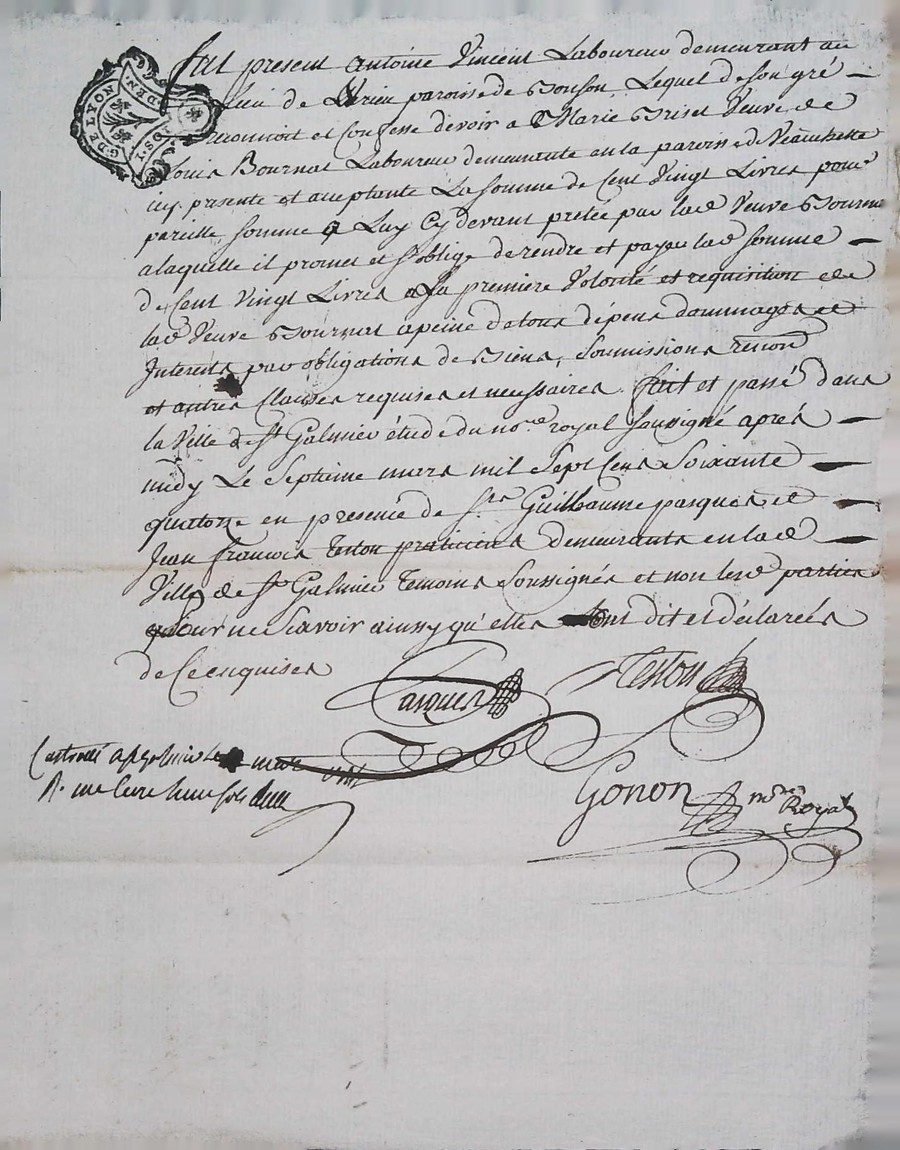 G. DE LYON
DEN.
fut present antoine Vincent Laboureur demeurant au
Lieu de paroisse de Bonson, Lequel de son gré
reconnoit et Confesse devoir a Marie Griset Veuve de
Louis Bournat Laboureur demeurante en la paroisse de Veauchette
icy presente et aceptante La somme de Cent Vingt Livres pour
pareille somme a Luy Cy devant pretée par lad Veuve Bournat
alaquelle il promet et s'oblige de rendre et payer lad somme
de Cent Vingt Livres a la premiere Volonté et requisition de
lad Veuve Bournat apeine de tous dépens dommages et
Interets par obligations de Biens, Soumissions renon
et autres Clauses requises et necessaires. fait et passé dans
la Ville de St Galmier étude du nore royal soussigné aprés
midy Le Septieme mars mil Sept Cens Soixante
quatorze en presence de Srs Guilhaume pasques et
Jean francois Teston praticiens demeurants en lad
Ville de St Galmier Temoins Soussignés et non lesd parties
pour ne Scavoir ainsy qu'elles ont dit et déclarées
de Ce enquises
Pasques Teston
Controllé a St galmier le mars
R. une livre sols
Gonon nore Royal